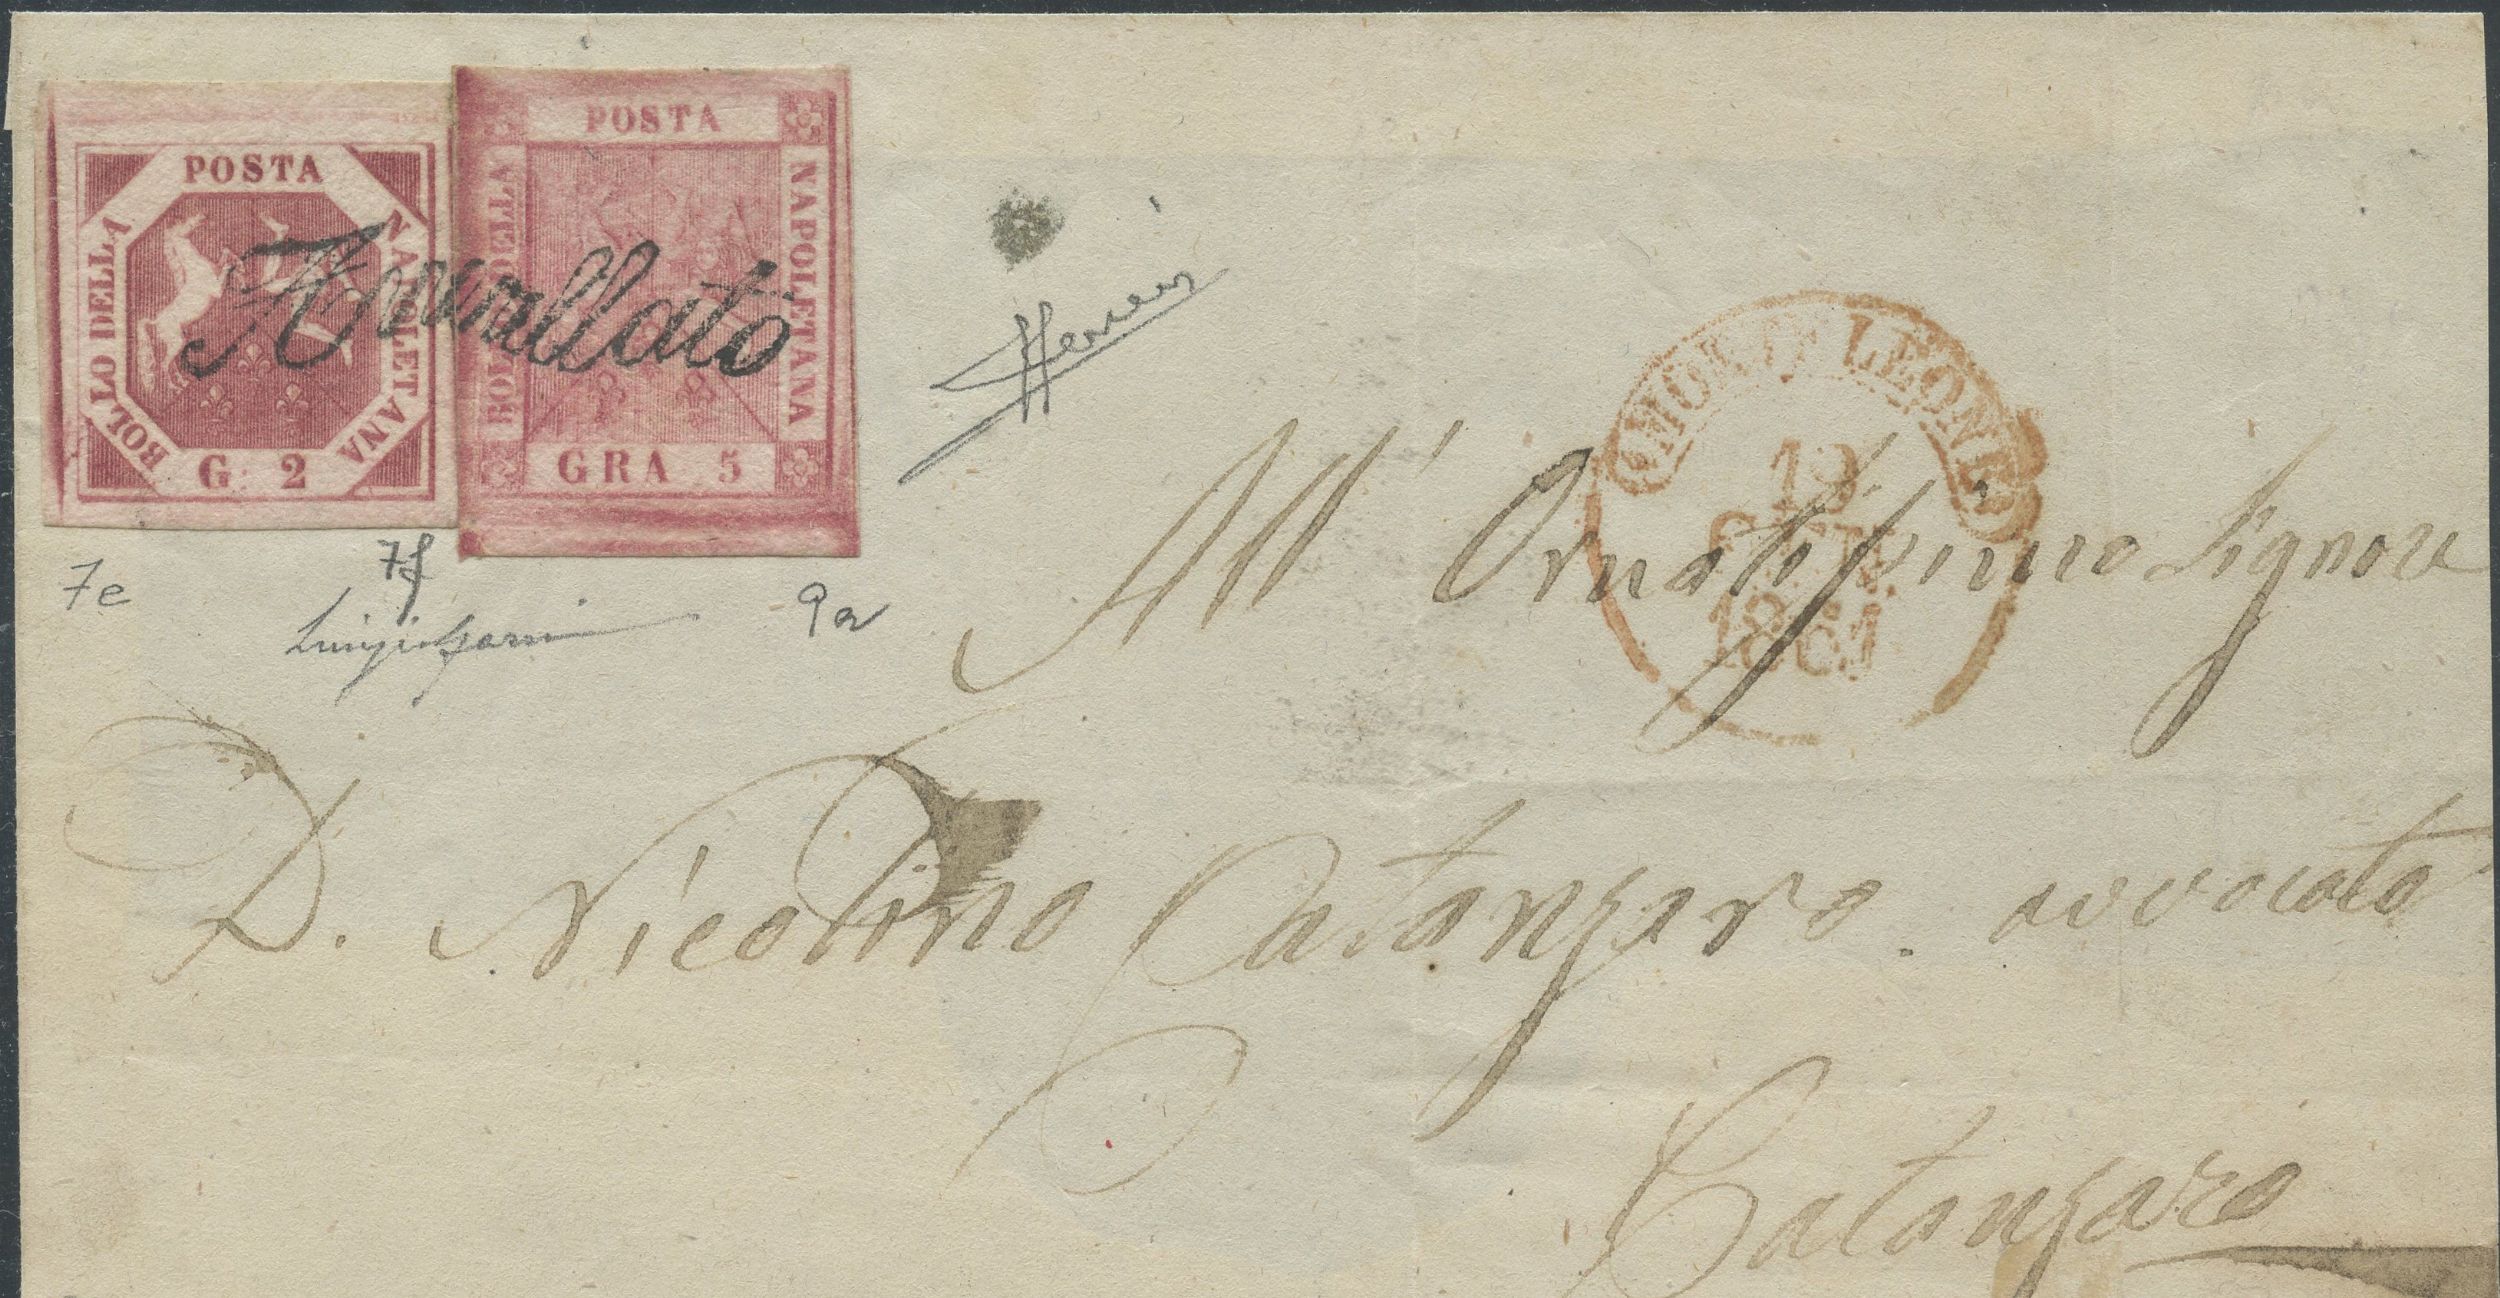 POSTA
BOLLO DELLA
NAPOLETANA
G. 2
POSTA
BOLLO DELLA
NAPOLETANA
GRA 5
Annullato
7e
7f
9a
MONTE LEONE
19
1861
All' Ornatissimo Signore
D. Nicolino Catanzaro. avvocato
Catanzaro